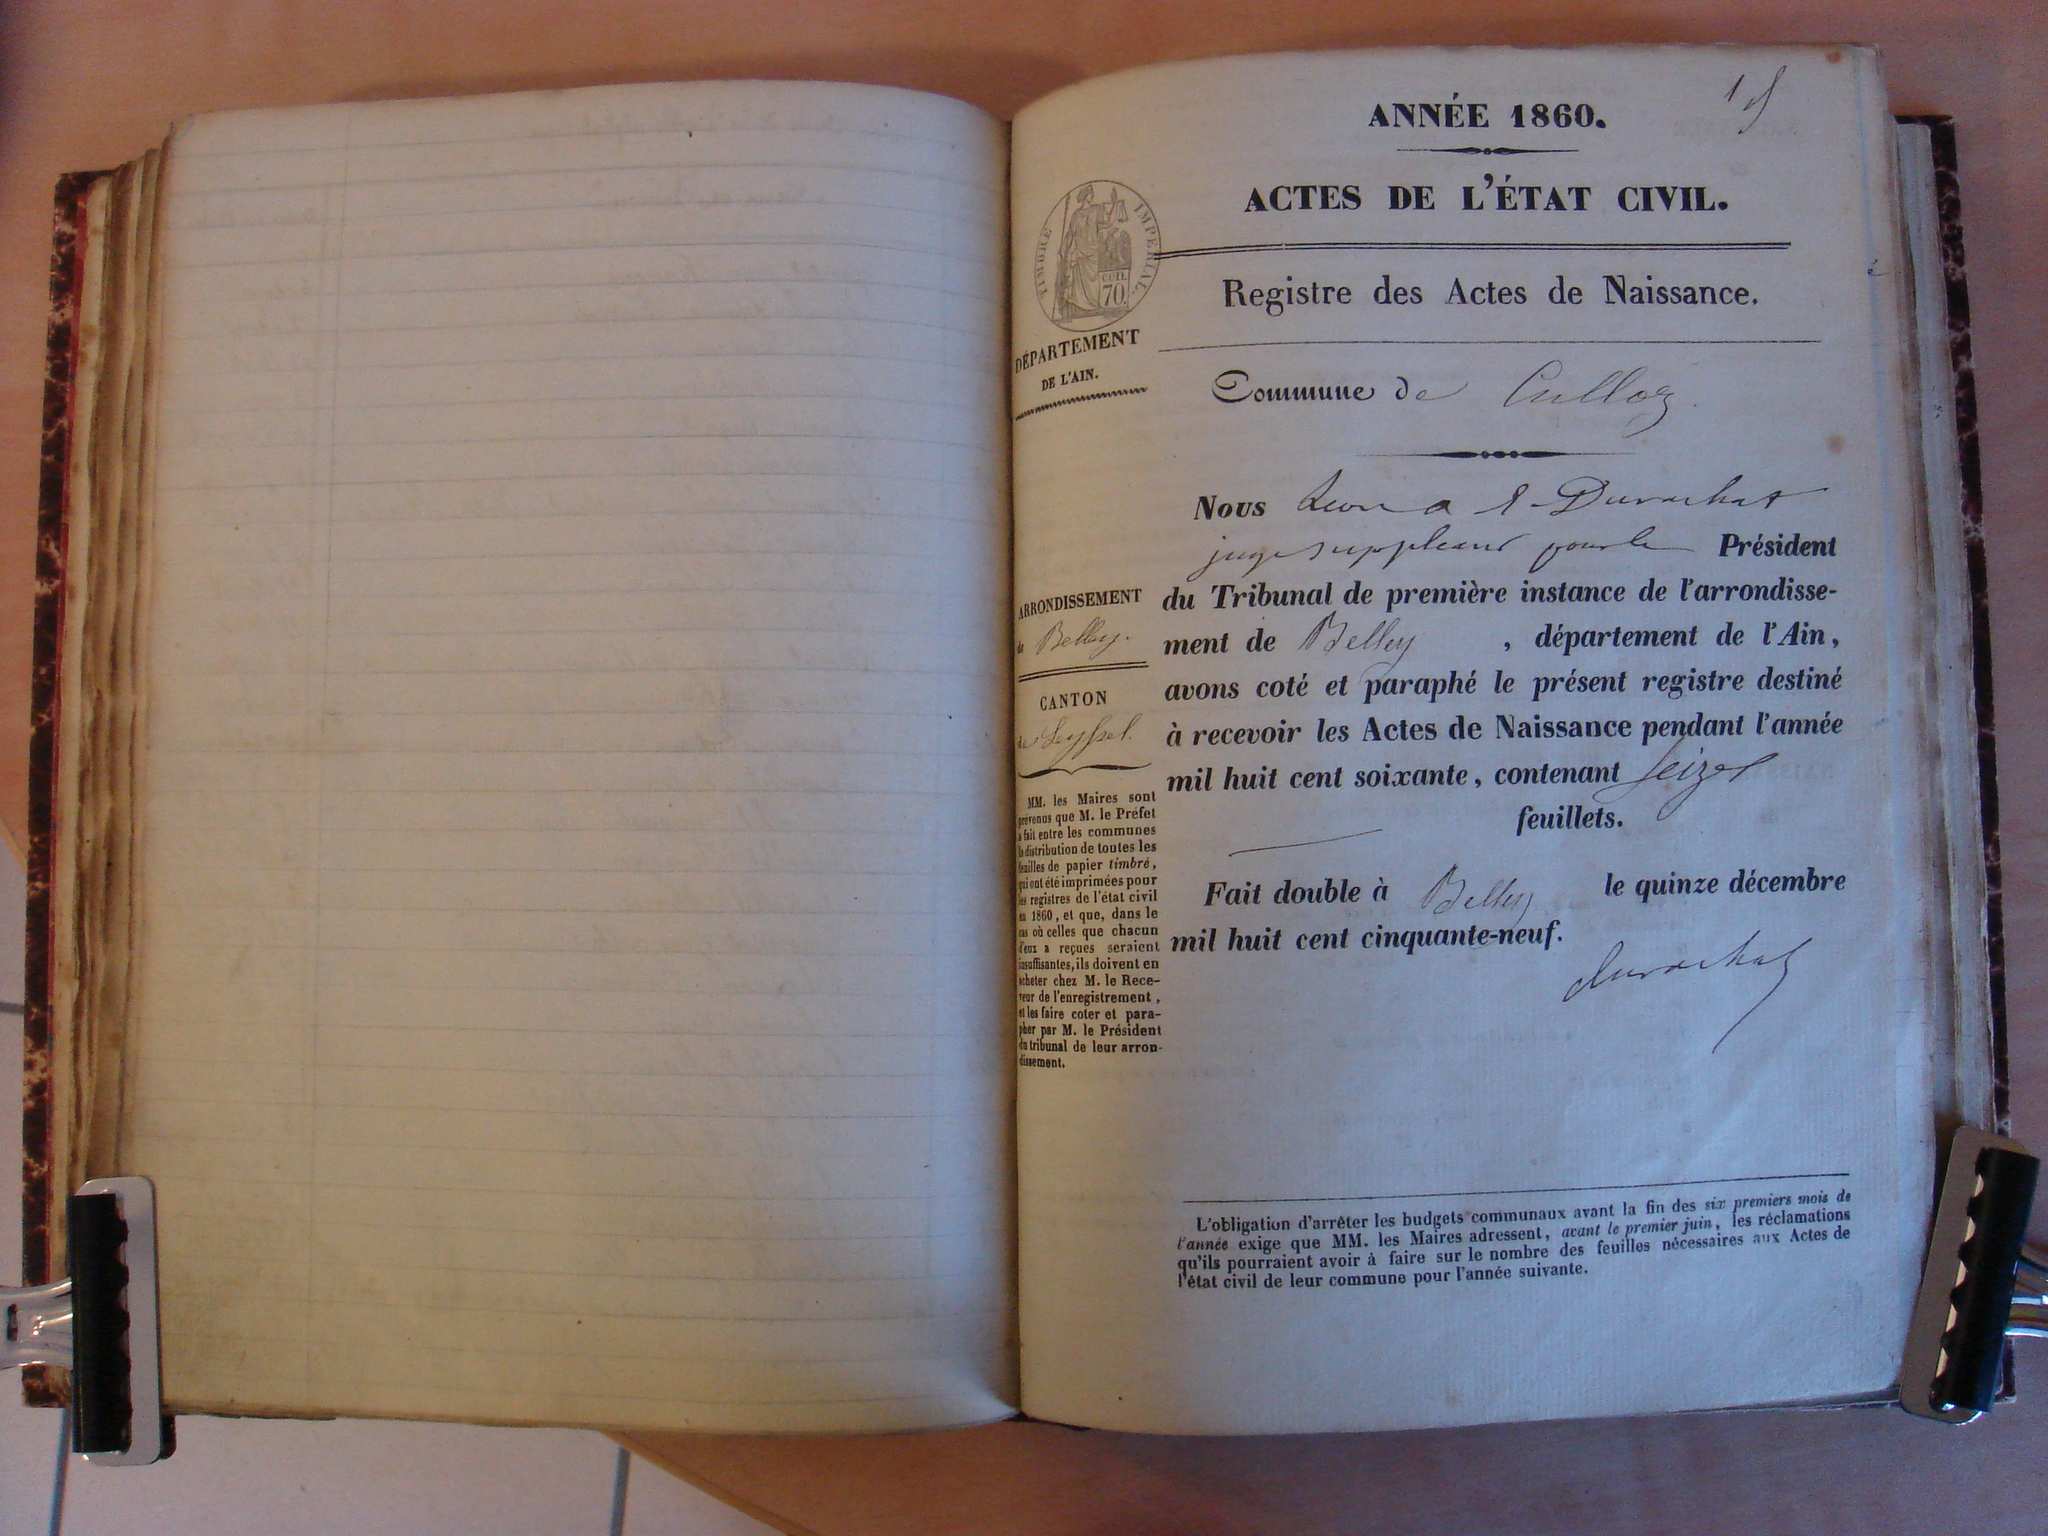 1
ANNÉE 1860.
ACTES DE L'ÉTAT CIVIL.
TIMBRE IMPERIAL
CEN.
70.
Registre des Actes de Naissance.
DÉPARTEMENT
DE L'AIN.
Commune de Culloz
Nous Durochat
juge suppleant pour le Président
du Tribunal de première instance de l'arrondisse-
ment de Belley, département de l'Ain,
avons coté et paraphé le présent registre destiné
à recevoir les Actes de Naissance pendant l'année
mil huit cent soixante, contenant seize
feuillets.
Fait double à Belley le quinze décembre
mil huit cent cinquante-neuf.
durochat
ARRONDISSEMENT
de Belley.
CANTON
de Seyssel.
MM. les Maires sont
prévenus que M. le Préfet
a fait entre les communes
la distribution de toutes les
feuilles de papier timbré,
qui ont été imprimées pour
les registres de l'état civil
en 1860, et que, dans le
cas où celles que chacun
d'eux a reçues seraient
insuffisantes, ils doivent en
acheter chez M. le Rece-
veur de l'enregistrement,
et les faire coter et para-
pher par M. le Président
du tribunal de leur arron-
dissement.
L'obligation d'arrêter les budgets communaux avant la fin des six premiers mois de
l'année exige que MM. les Maires adressent, avant le premier juin, les réclamations
qu'ils pourraient avoir à faire sur le nombre des feuilles nécessaires aux Actes de
l'état civil de leur commune pour l'année suivante.